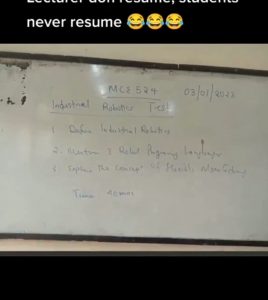 Lecturer don resume, students
never resume 😂😂😂
MCE 524 03/01/2022
Industrial Robotics Test
1. Define Industrial Robotics
2. Mention 3 Robot Language
3. Explain the concept of Flexible
Time: 40mins